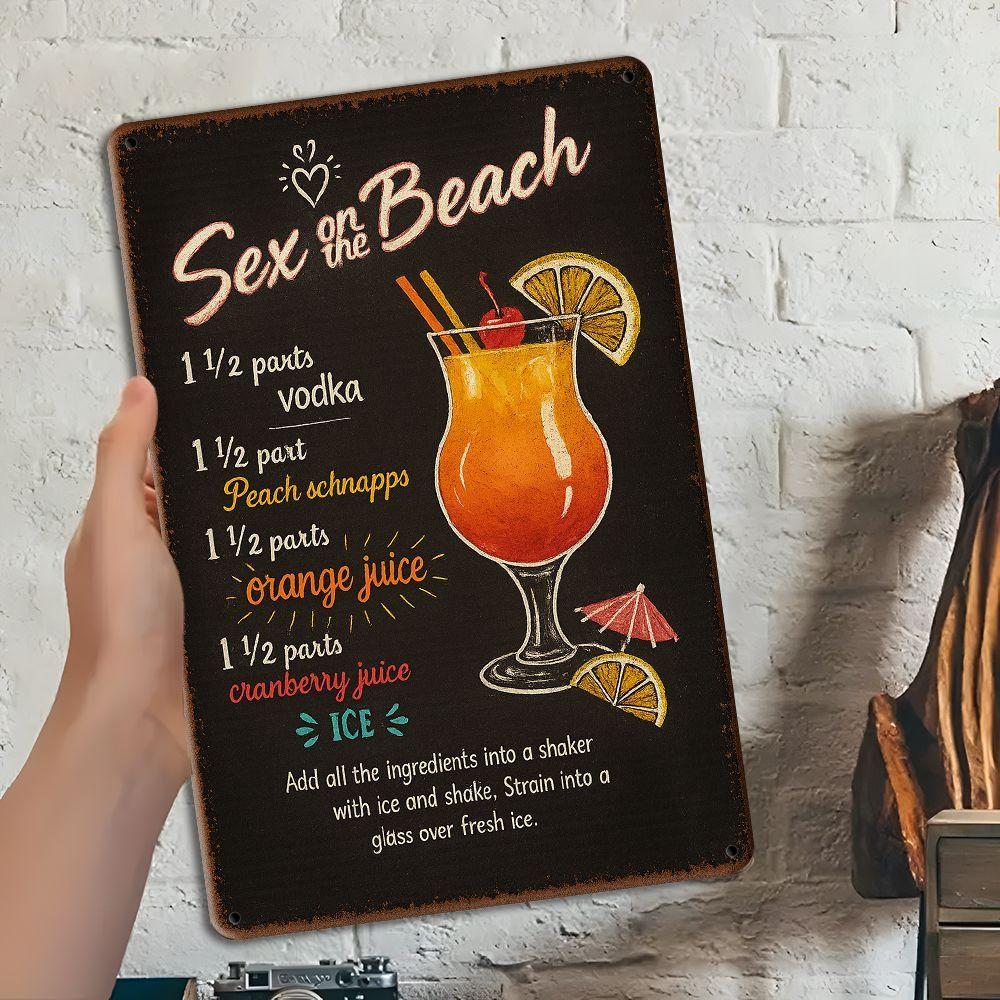 Sex on the Beach
1 1/2 parts
vodka
1 1/2 part
Peach schnapps
1 1/2 parts
orange juice
1 1/2 parts
cranberry juice
ICE
Add all the ingredients into a shaker
with ice and shake, Strain into a
glass over fresh ice.